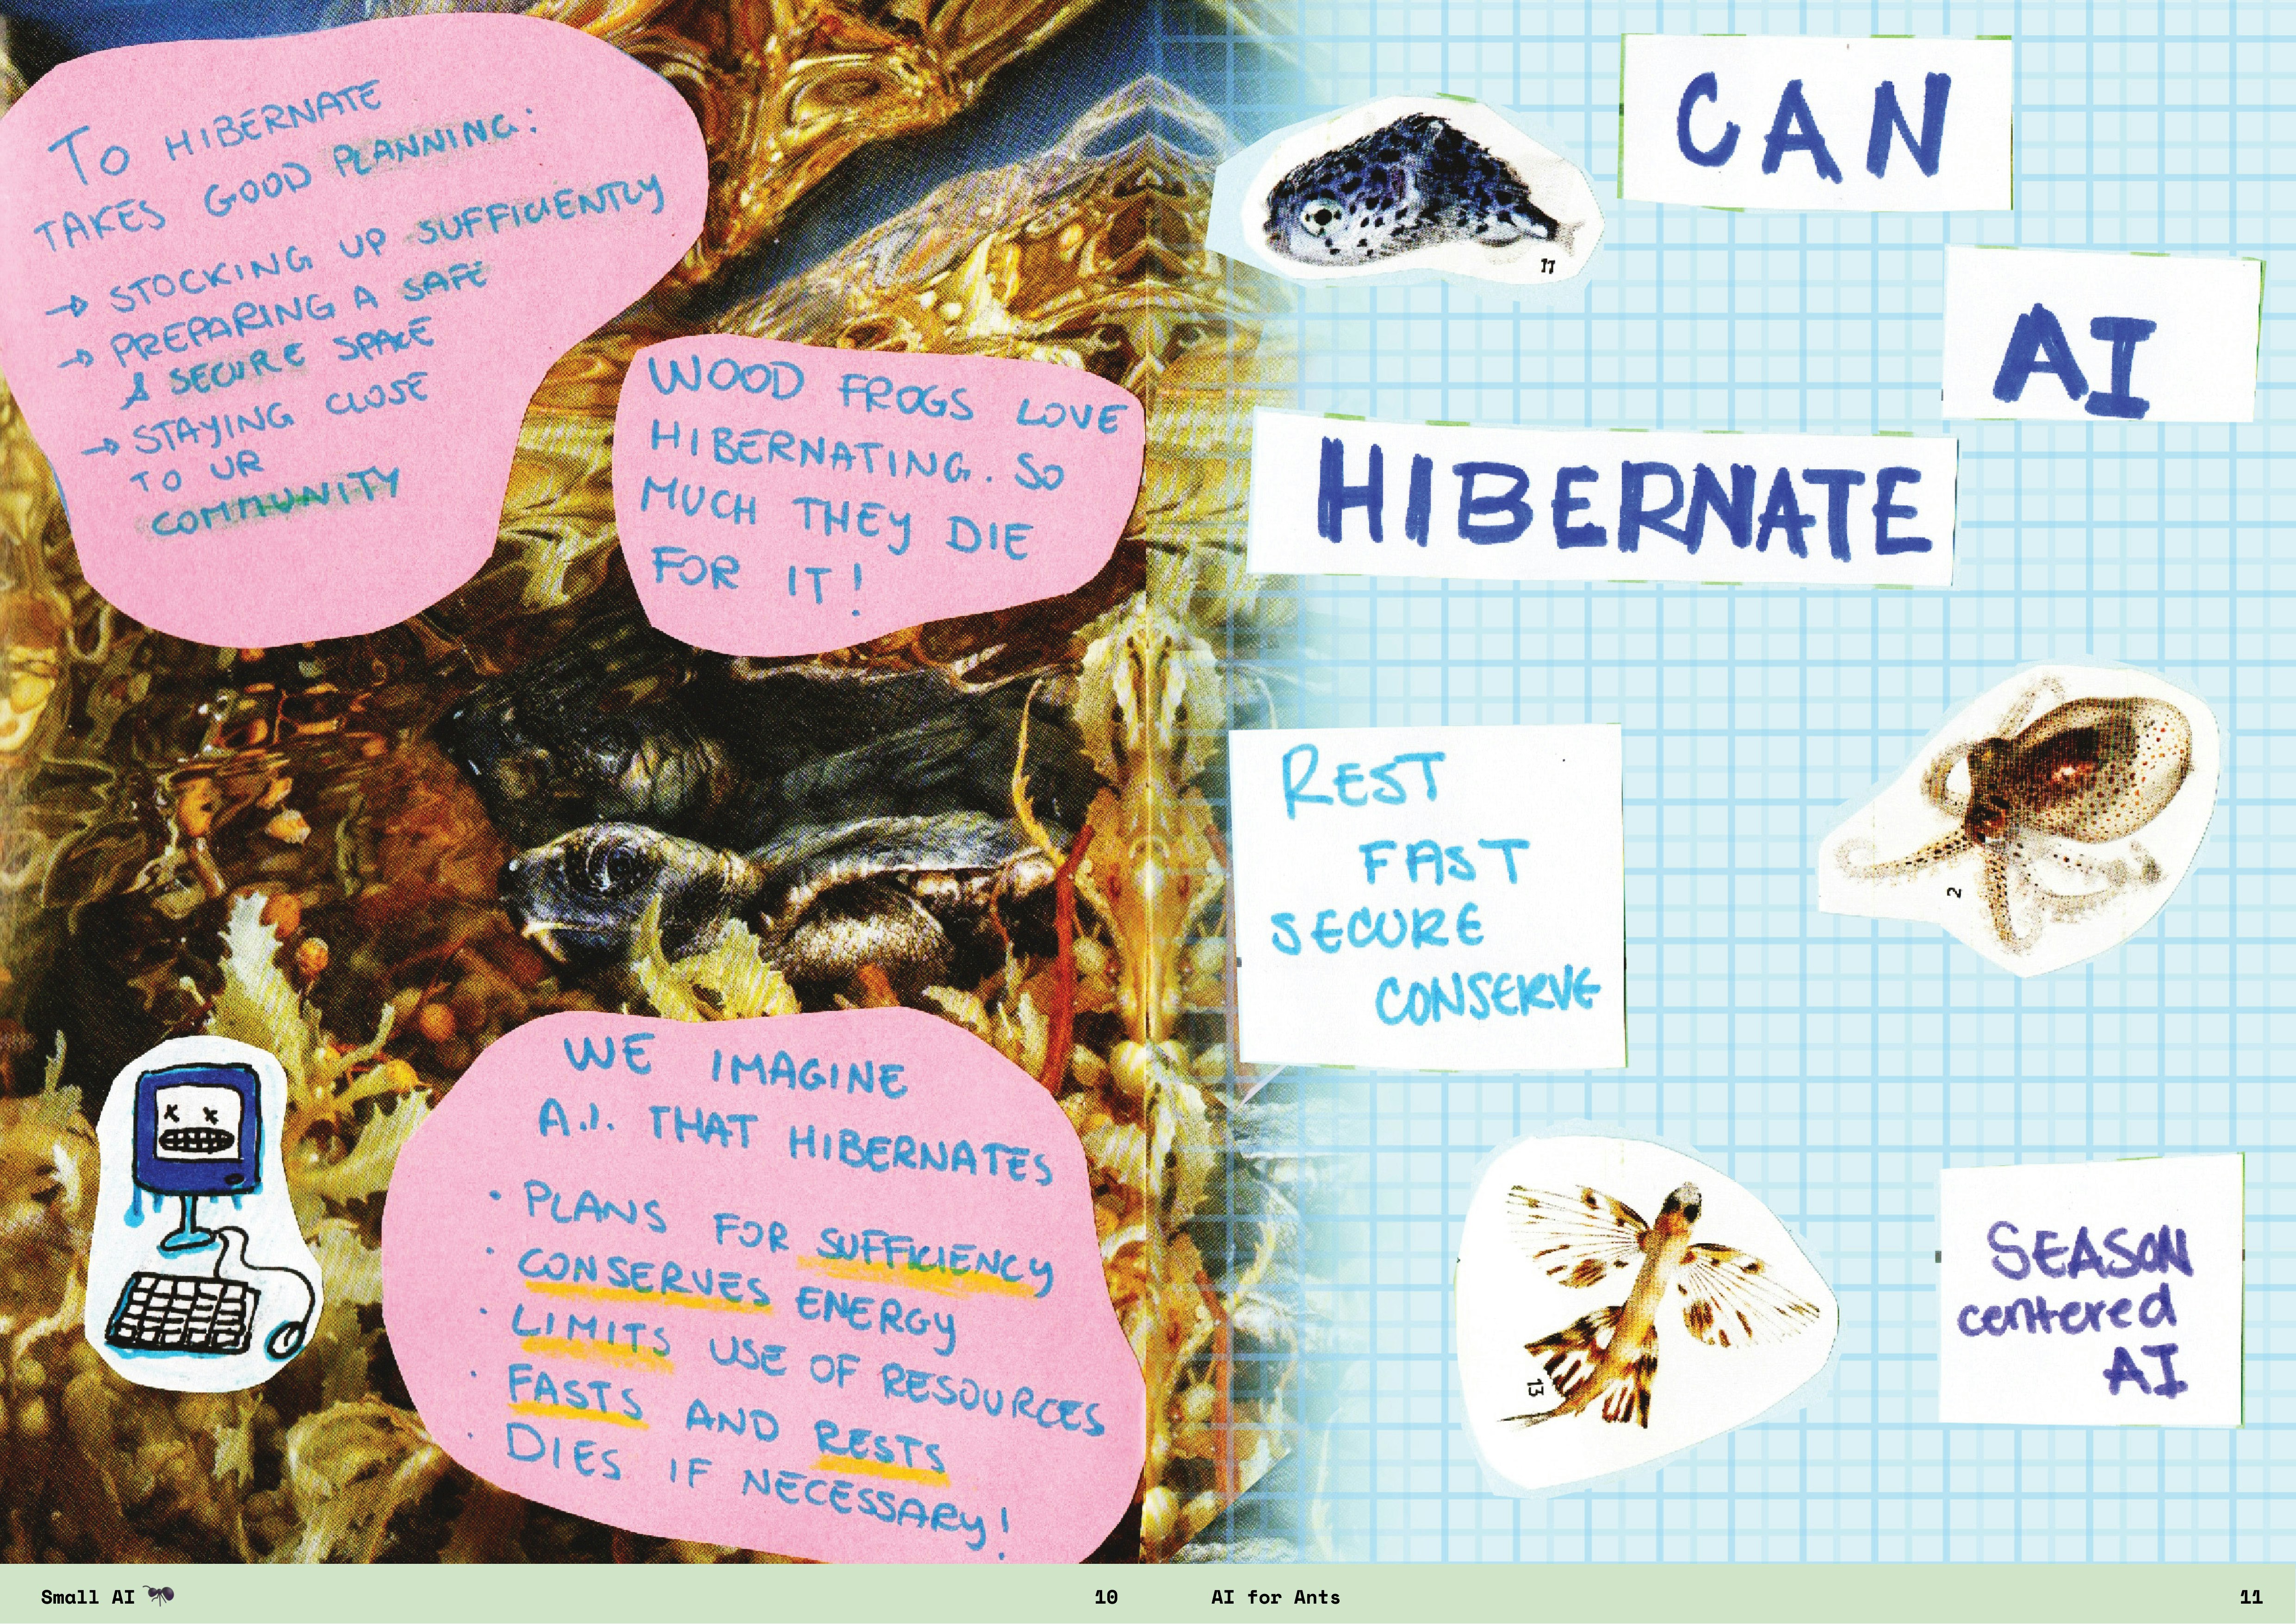 To HIBERNATE
TAKES GOOD PLANNING:
→ STOCKING UP SUFFICIENTLY
→ PREPARING A SAFE
& SECURE SPACE
→ STAYING CLOSE
TO UR
COMMUNITY
WOOD FROGS LOVE
HIBERNATING. SO
MUCH THEY DIE
FOR IT!
WE IMAGINE
A.I. THAT HIBERNATES
· PLANS FOR SUFFICIENCY
· CONSERVES ENERGY
· LIMITS USE OF RESOURCES
· FASTS AND RESTS
· DIES IF NECESSARY!
Small AI
10
CAN
11
AI
HIBERNATE
REST
FAST
SECURE
CONSERVE
2
13
SEASON
centered
AI
AI for Ants
11